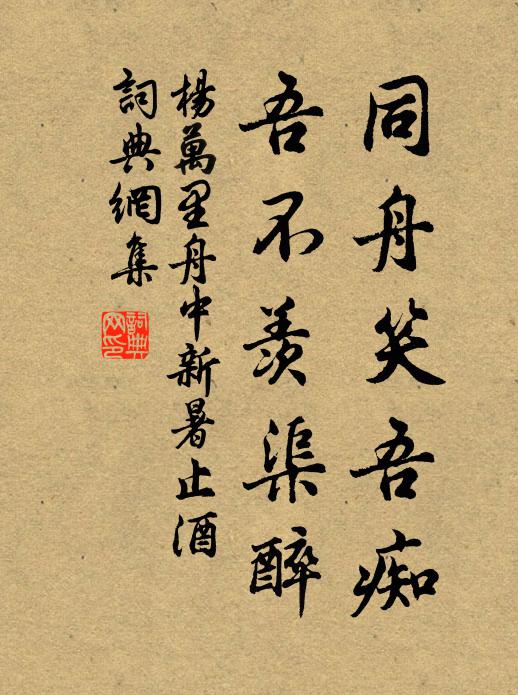 同舟笑吾痴
吾不羨渠醉
楊萬里舟中新暑止酒
詞典網集
詞典網印